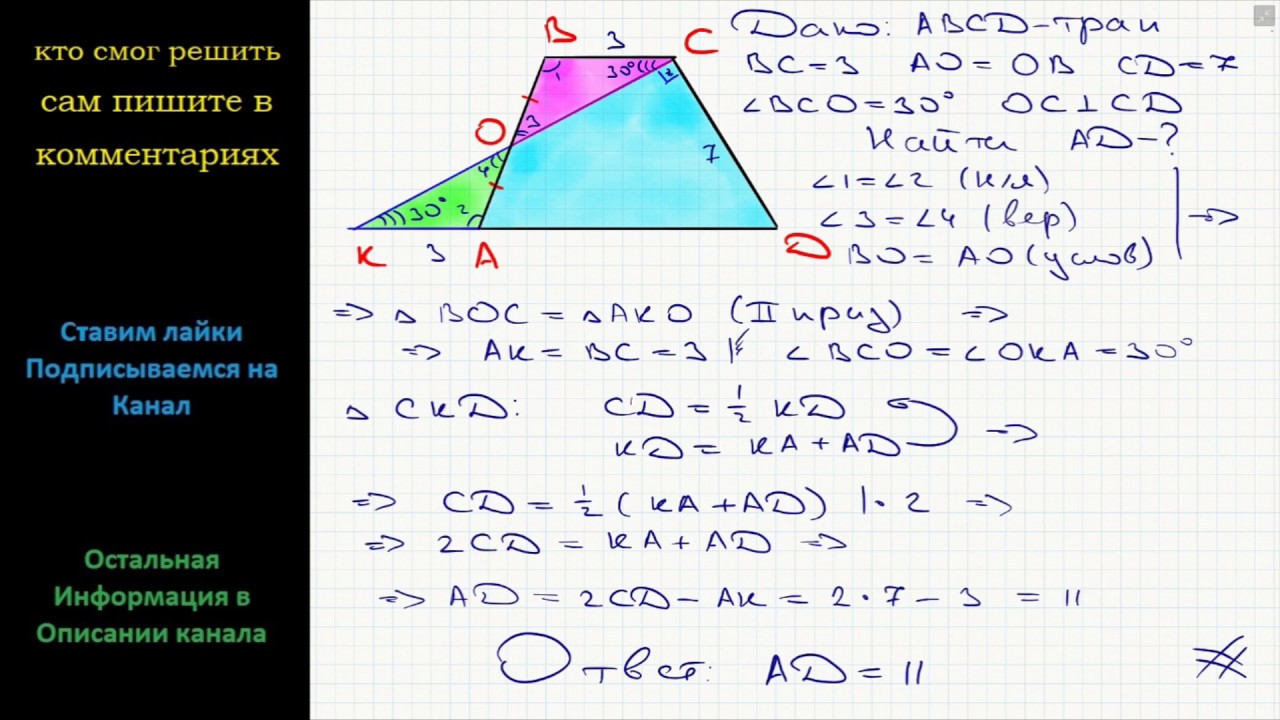 кто смог решить
сам пишите в
комментариях
Ставим лайки
Подписываемся на
Канал
Остальная
Информация в
Описании канала
B 3 C
1 30° 2
O 3
4 7
30° 2
K 3 A D
Дано: ABCD-трап
BC=3 AO=OB CD=7
∠BCO=30° OC⊥CD
Найти AD-?
∠1=∠2 (н/л)
∠3=∠4 (вер)
BO=AO (услов)
=>
=> △ BOC = △AKO (II призн) =>
=> AK = BC = 3 и ∠ BCO = ∠ OKA = 30°
△ CKD: CD = 1/2 KD
KD = KA + AD =>
=> CD = 1/2 (KA + AD) |· 2 =>
=> 2CD = KA + AD =>
=> AD = 2CD - AK = 2 · 7 - 3 = 11
Ответ: AD = 11